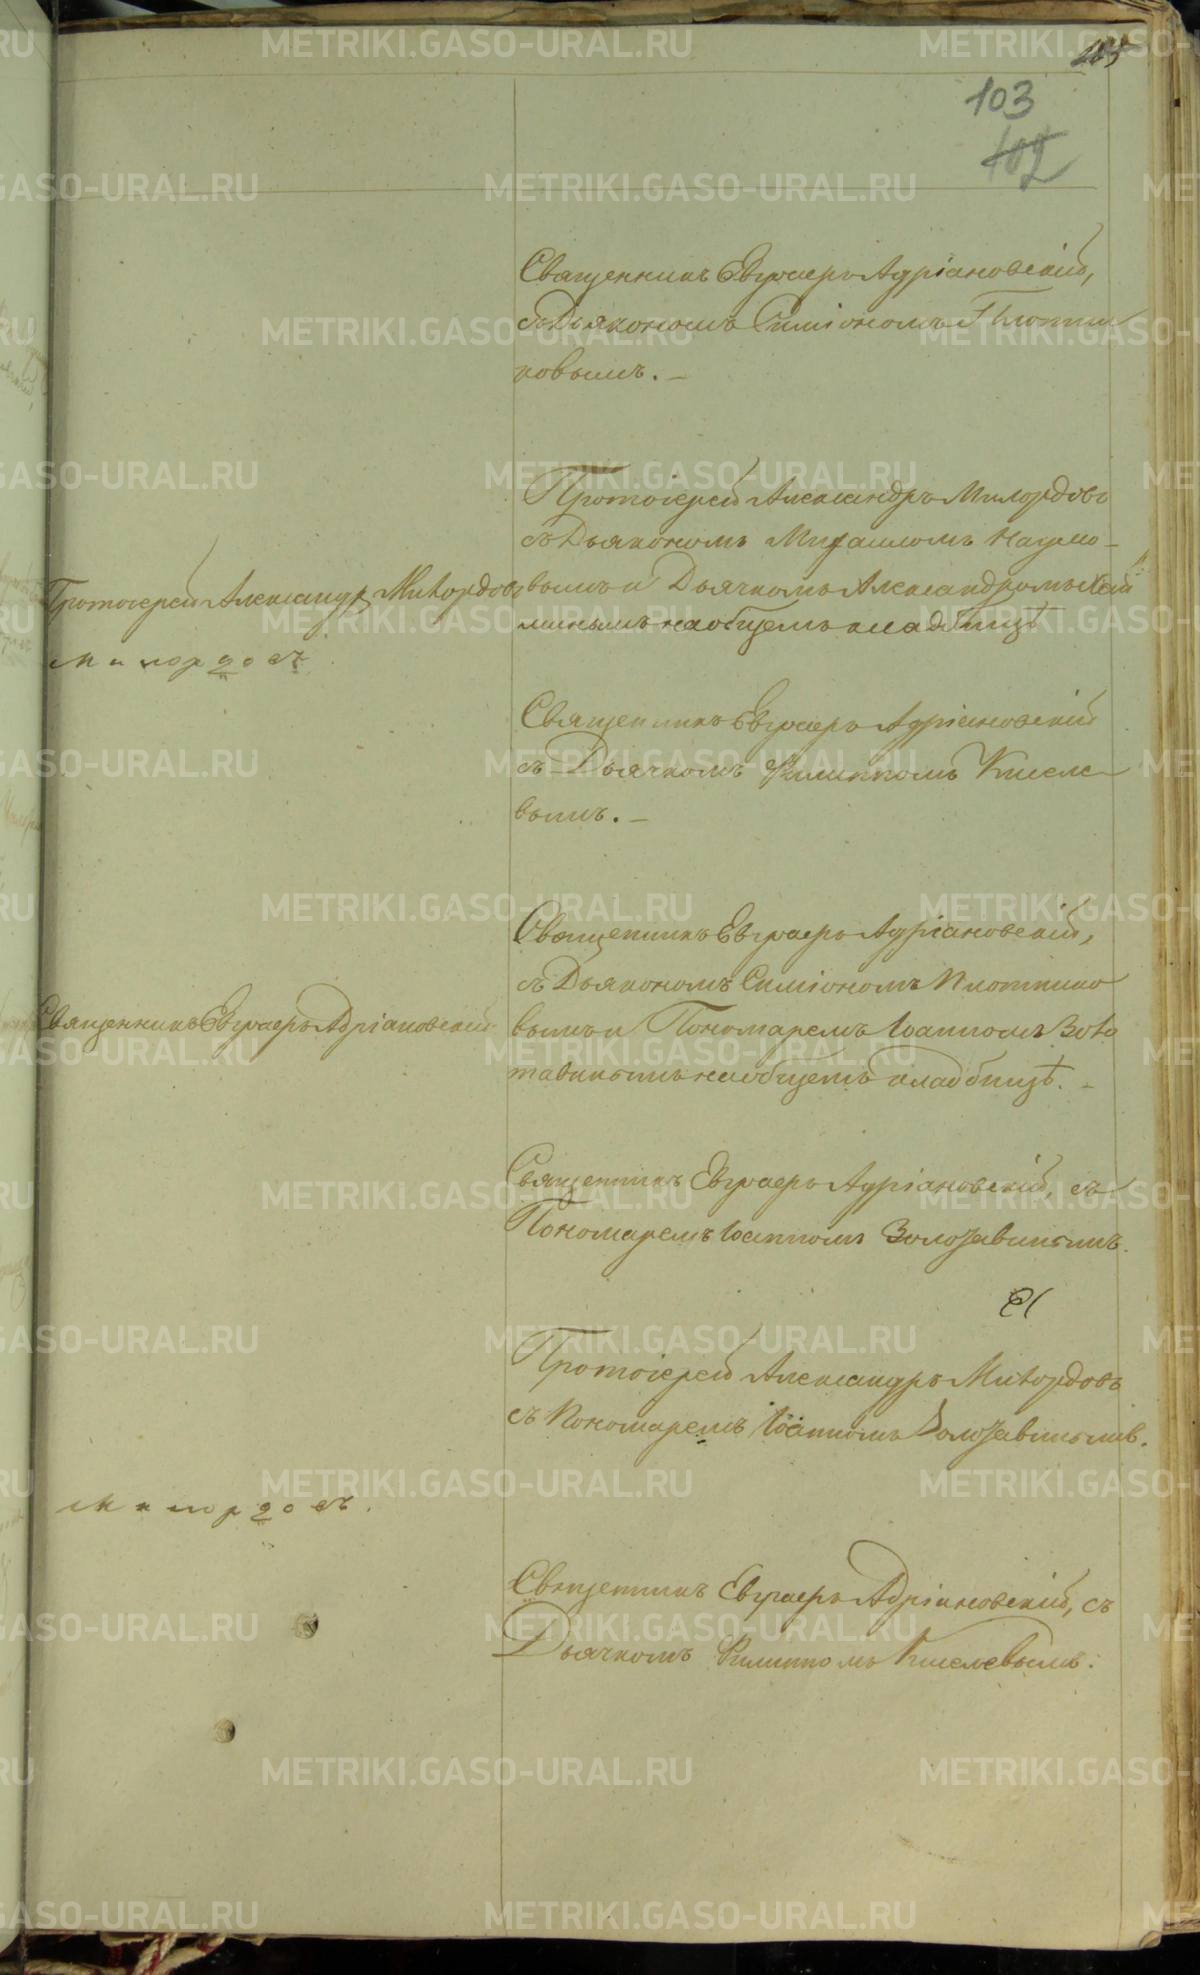 103
102
Священникъ Евграфъ Адріановскій,
съ Дьякономъ Симіономъ Плотни
ковымъ. —
Протоіерей Александръ Милордовъ
съ Дьякономъ Михаиломъ Наумо-
вымъ и Дьячкомъ Александромъ
на общемъ кладбищѣ
Протоіерей Александръ Милордовъ
Милордовъ
Священникъ Евграфъ Адріановскій
съ Дьячкомъ Филиппомъ Кисел
вымъ. —
Священникъ Евграфъ Адріановскій,
съ Дьякономъ Симіономъ Плотнико
вымъ и Пономаремъ Іоанномъ Золо
тавинымъ на общемъ кладбищѣ. -
Священникъ Евграфъ Адріановскій
Священникъ Евграфъ Адріановскій, съ
Пономаремъ Іоанномъ Золотавинымъ.
Протоіерей Александръ Милордовъ
съ Пономаремъ Іоанномъ Золотавинымъ.
Милордовъ.
Священникъ Евграфъ Адріановскій, съ
Дьячкомъ Филиппомъ Киселевымъ.
METRIKI.GASO-URAL.RU